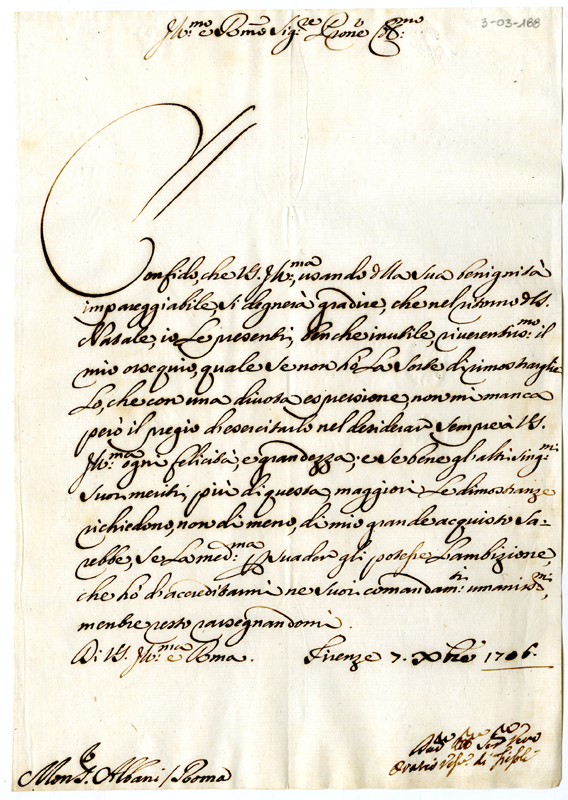 3-03-188
Ill.mo e R.mo Sig.re Prone Col.mo
Confido, che V.S. Ill.ma, usando d̅lla sua benignità
impareggiabile, si degnerà gradire, che nel ritorno d̅l S.
Natale, io Le presenti, benche inutile, riverentiss.mo il
mio ossequio, quale se non hà La sorte di rimostrarglie
Lo, che con una divota espressione, non mi manca
però il pregio d'esercitarlo nel desiderar sempre à V.S.
Ill.ma ogni felicità, e grandezza; e se bene gli alti sing.mi
suoi meriti, più di questa, maggiori Le dimostranze
richiedono, non di meno, di mio grande acquisto sa-
rebbe, se La med.ma p̱suader gli potesse L'ambizione,
che hò d'accreditarmi ne suoi comandam.ti umaniss.mi,
mentre resto rassegnandomi.
Di V.S. Ill.ma e R̅ma. Firenze 7. Xbre 1706.
Orazio Vesc. di Fiesole
Mons.r Albani / Roma